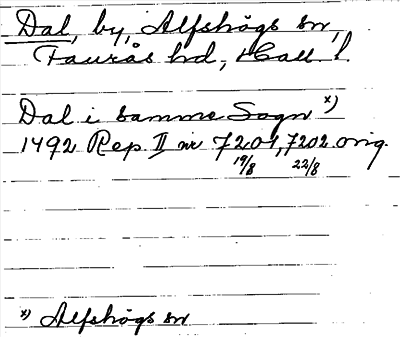 Dal, by, Alfshögs sn,
Faurås hd, Hall. l.
Dal i samme Sogn x)
1492 Rep. II nr 7201, 7202 orig.
19/8 22/8
x) Alfshögs sn